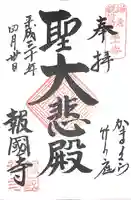 奉拝
かまくら
竹の庭
聖大悲殿
平成三十年
四月廿日
報國寺